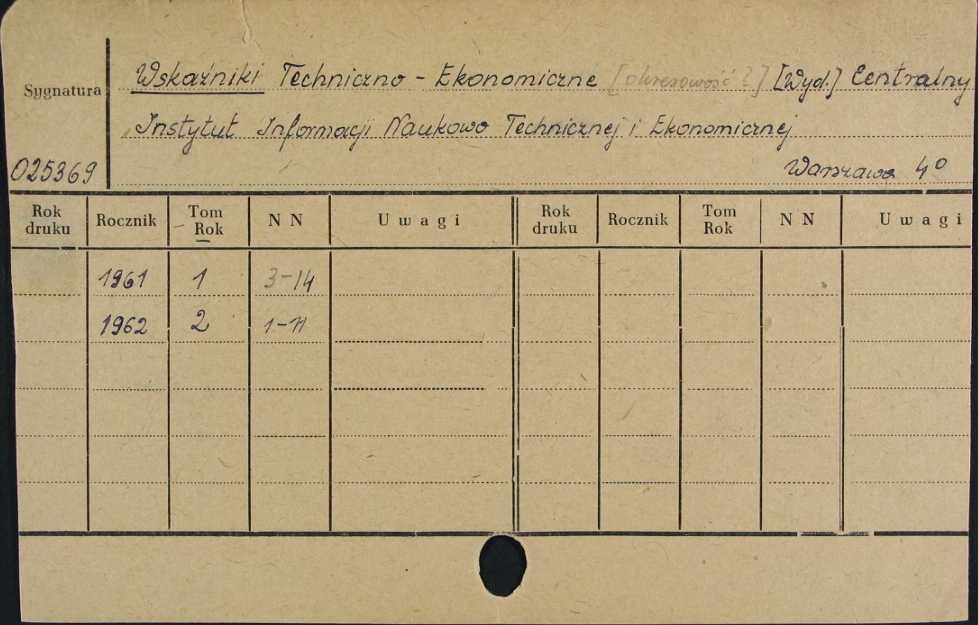 Wskaźniki Techniczno - Ekonomiczne [okresowość ?] [Wyd.] Centralny
Sygnatura
Instytut Informacji Naukowo Technicznej i Ekonomicznej
025369
Warszawa 4°
Rok druku Rocznik Tom Rok N N Uwagi Rok druku Rocznik Tom Rok N N Uwagi
1961 1 3-14
1962 2 1-11